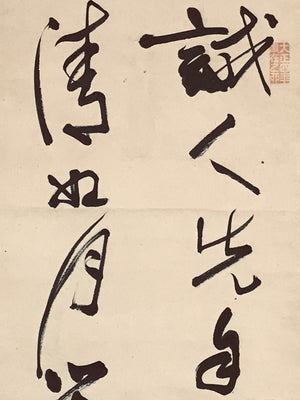 誡人先自
清如月